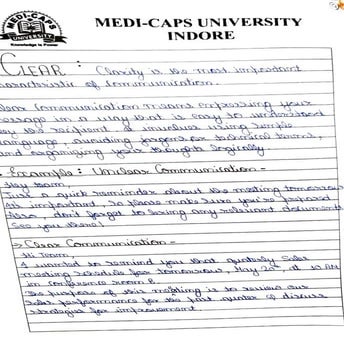 MEDI-CAPS
UNIVERSITY
Knowledge is Power
MEDI-CAPS UNIVERSITY
INDORE
CLEAR : Clarity is the most important
characteristic of communication.
Clear Communication means expressing your
message in a way that is easy to understand
by the recipient. It involves using simple
language, avoiding jargon or technical terms,
and organizing your thoughts logically.
Example : Unclear Communication -
Hey team,
Just a quick reminder about the meeting tomorrow
It's important, so please make sure you're prepared
Also, don't forget to bring any relevant documents
See you there!
→ Clear Communication -
Hi Team,
I wanted to remind you that quarterly Sales
meeting schedule for tomorrow, May 20th, at 10 AM
in conference room B.
The purpose of this meeting is to review our
sales performance for the past quater & discuss
strategies for improvement.